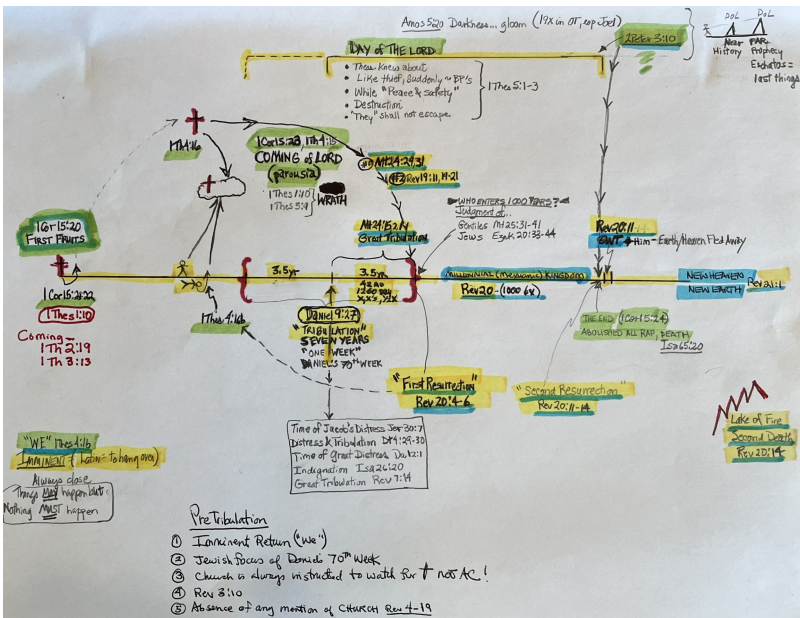 Amos 5:20 Darkness... gloom (19x in OT, esp Joel)
2Peter 3:10
DOL
DOL
Near
History
FAR
Prophecy
Eschatos =
last things
DAY OF THE LORD
• Thess Knew about
• Like thief, Suddenly ~ BP's
• While "Peace & Safety"
• Destruction
• "They" shall not escape
1Thes 5:1-3
1Th 4:16
1Cor 15:23, 1Th 4:15
COMING of LORD
(parousia)
1Thes 1:10
1Thes 5:9
WRATH
Mt 24:29,31
#2 Rev 19:11, 19-21
WHO ENTERS 1000 YEARS?
Judgment of...
Gentiles Mt 25:31-41
Jews Ezek 20:33-44
Great Tribulation
1Cor 15:20
FIRST FRUITS
Rev 20:11
GWT Him - Earth/Heaven Fled Away
3.5 yr
3.5 yr
42 mo
1260 day
MILLENNIAL (Messianic) KINGDOM
Rev 20 - (1000 6x)
NEW HEAVEN
NEW EARTH
Rev 21:1
1Cor 15:22
1Thes 1:10
Coming -
1Th 2:19
1Th 3:13
1Thes 4:16
Daniel 9:27
"TRIBULATION"
SEVEN YEARS
"ONE WEEK"
DANIEL'S 70th WEEK
THE END (1Cor 15:24)
ABOLISHED ALL RAP, DEATH
Isa 65:20
"First Resurrection"
Rev 20:4-6
"Second Resurrection"
Rev 20:11-14
Lake of Fire
Second Death
Rev 20:14
Time of Jacob's Distress Jer 30:7
Distress & Tribulation Dt 4:29-30
Time of Great Distress Da 12:1
Indignation Isa 26:20
Great Tribulation Rev 7:14
"WE" 1Thes 4:16
IMMINENT (Latin = to hang over)
Always close
Things MAY happen but
Nothing MUST happen
PreTribulation
① Imminent Return ("We")
② Jewish focus of Daniel's 70th Week
③ Church is always instructed to watch for † not AC!
④ Rev 3:10
⑤ Absence of any mention of CHURCH Rev 4-19